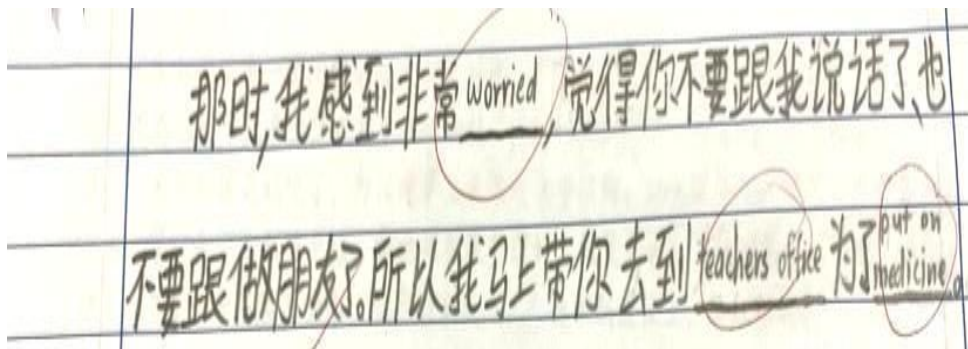 那时,我感到非常 worried, 觉得你不要跟我说话了、也
不要跟做朋友了。所以我马上带你去到 teachers office 为了 put on medicine。